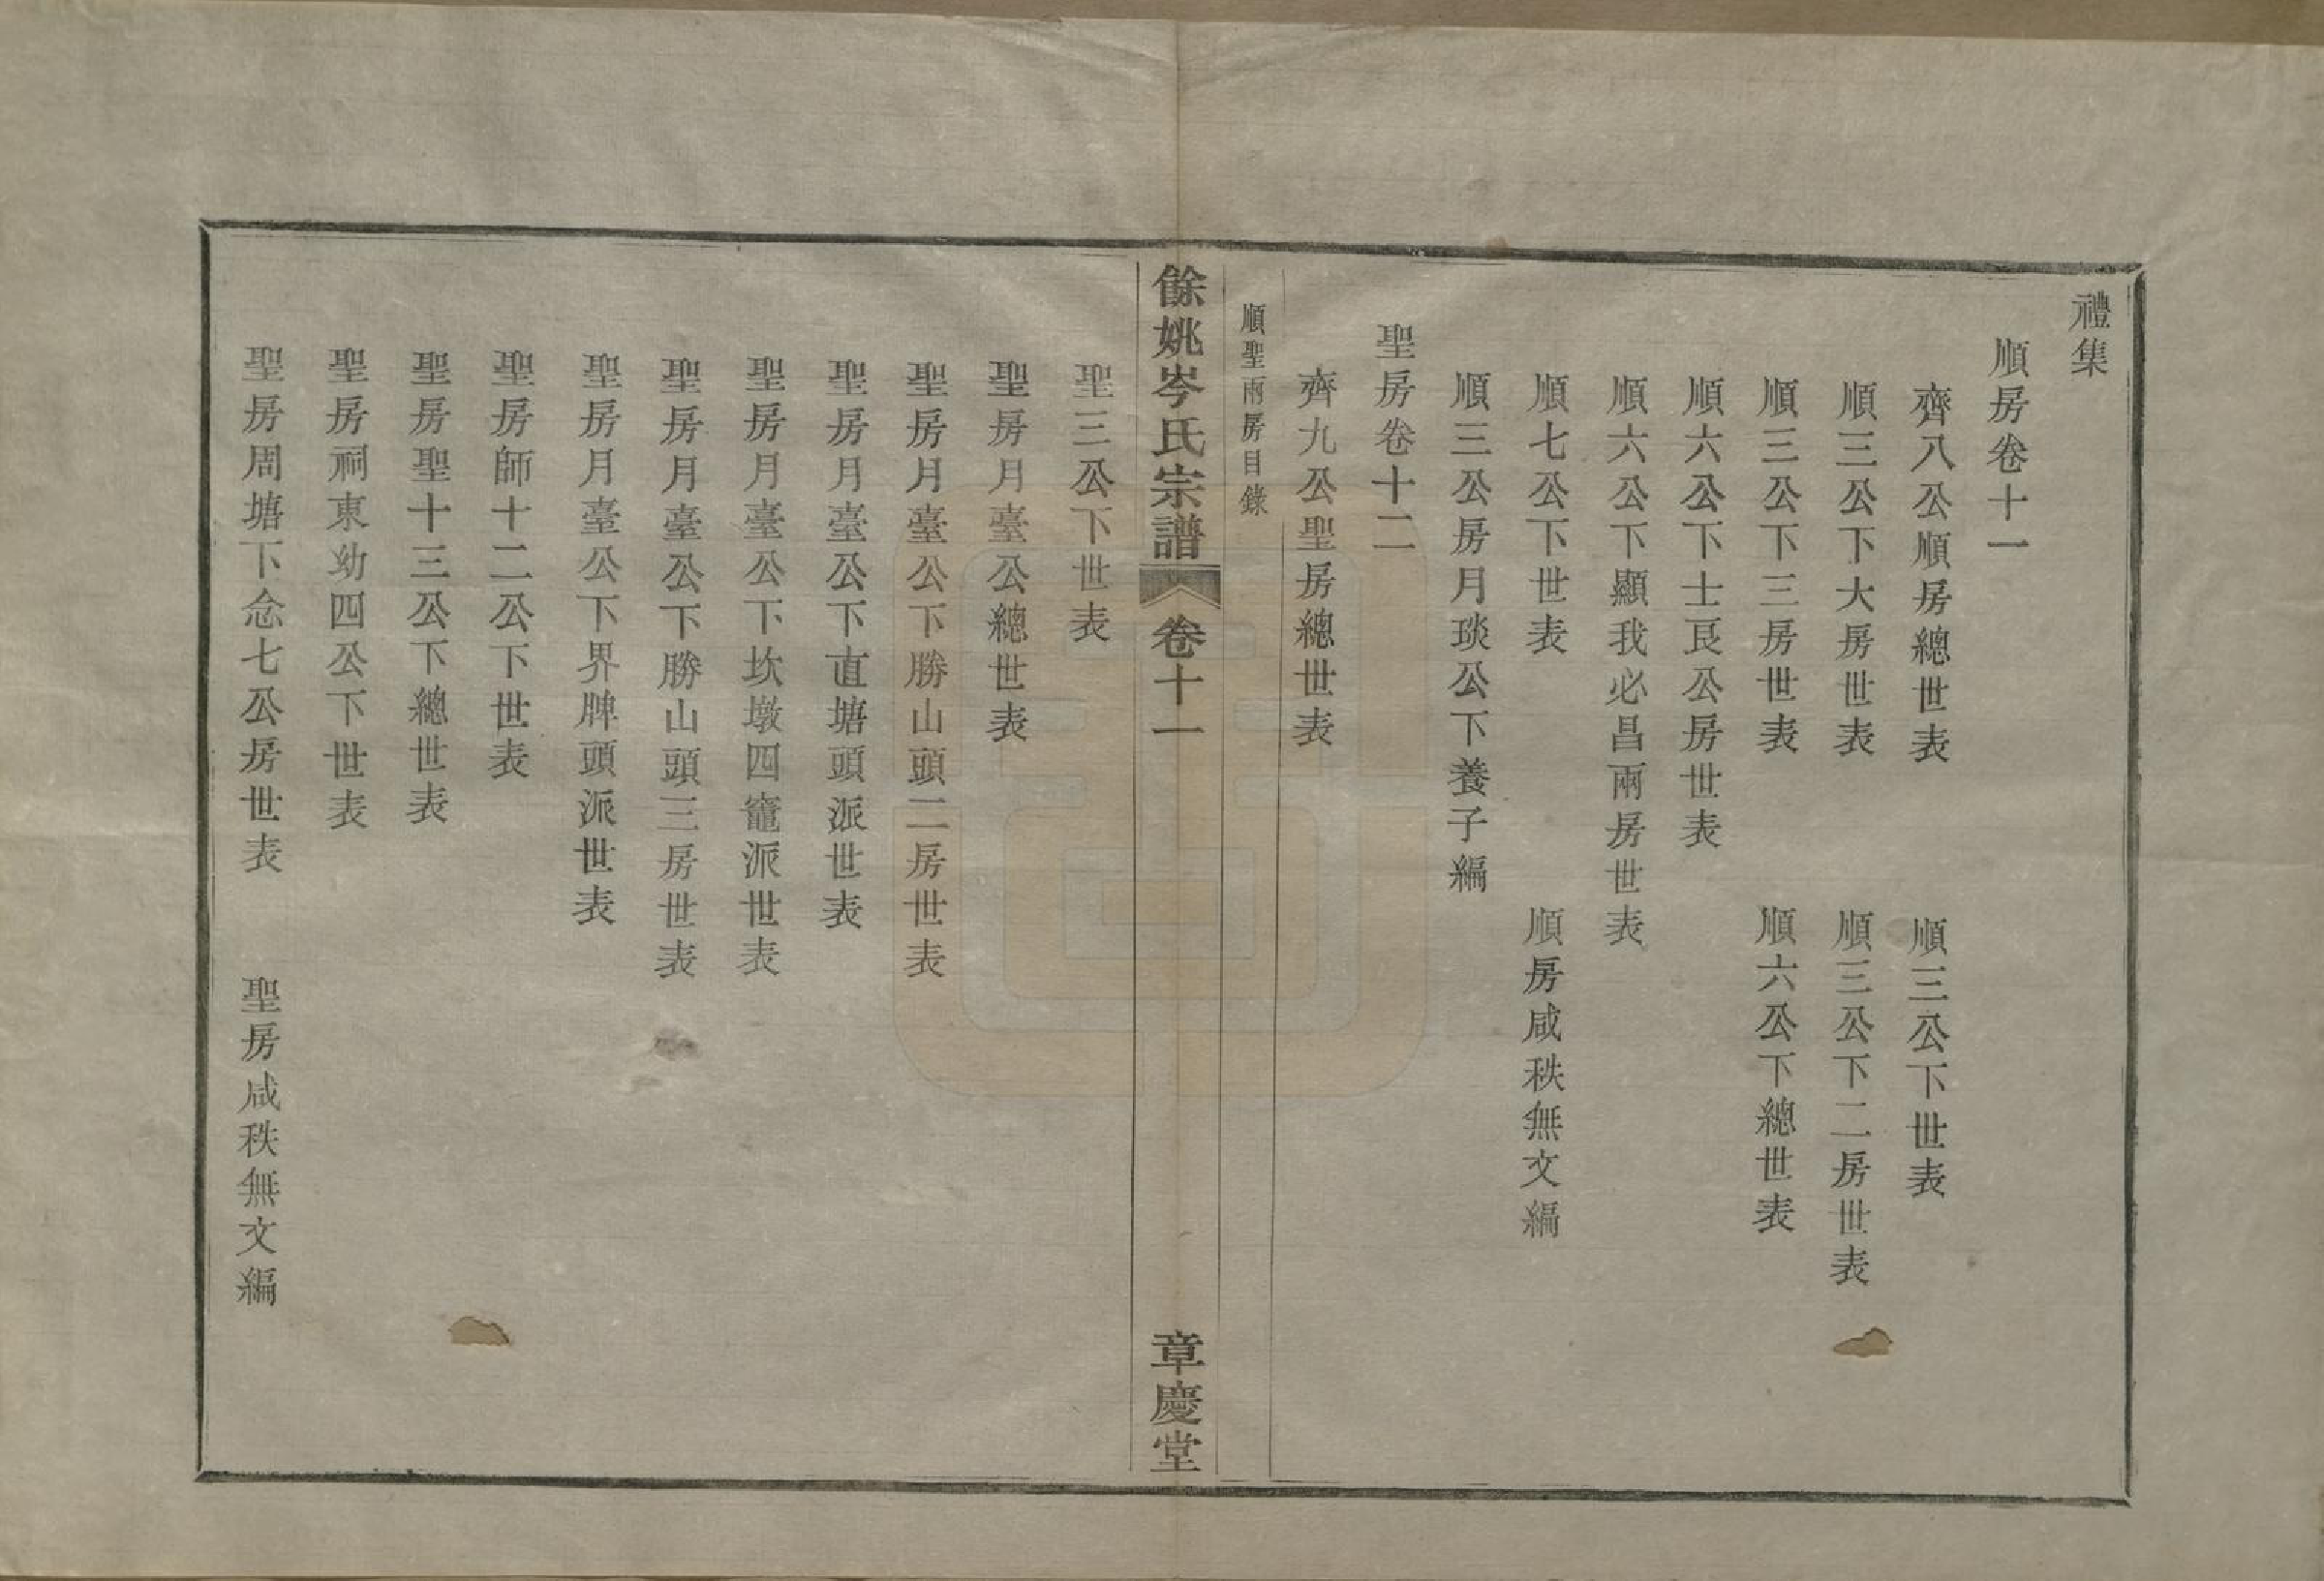 禮集
順房卷十一
齊八公順房總世表　順三公下世表
順三公下大房世表　順三公下二房世表
順三公下三房世表　順六公下總世表
順六公下士艮公房世表
順六公下顯我必昌兩房世表
順七公下世表　順房咸秩無文編
順三公房月琰公下養子編
聖房卷十二
齊九公聖房總世表
順聖兩房目錄
餘姚岑氏宗譜　卷十一　章慶堂
聖三公下世表
聖房月臺公總世表
聖房月臺公下勝山頭二房世表
聖房月臺公下直塘頭派世表
聖房月臺公下坎墩四竈派世表
聖房月臺公下勝山頭三房世表
聖房月臺公下界牌頭派世表
聖房師十二公下世表
聖房聖十三公下總世表
聖房祠東幼四公下世表
聖房周塘下念七公房世表　聖房咸秩無文編